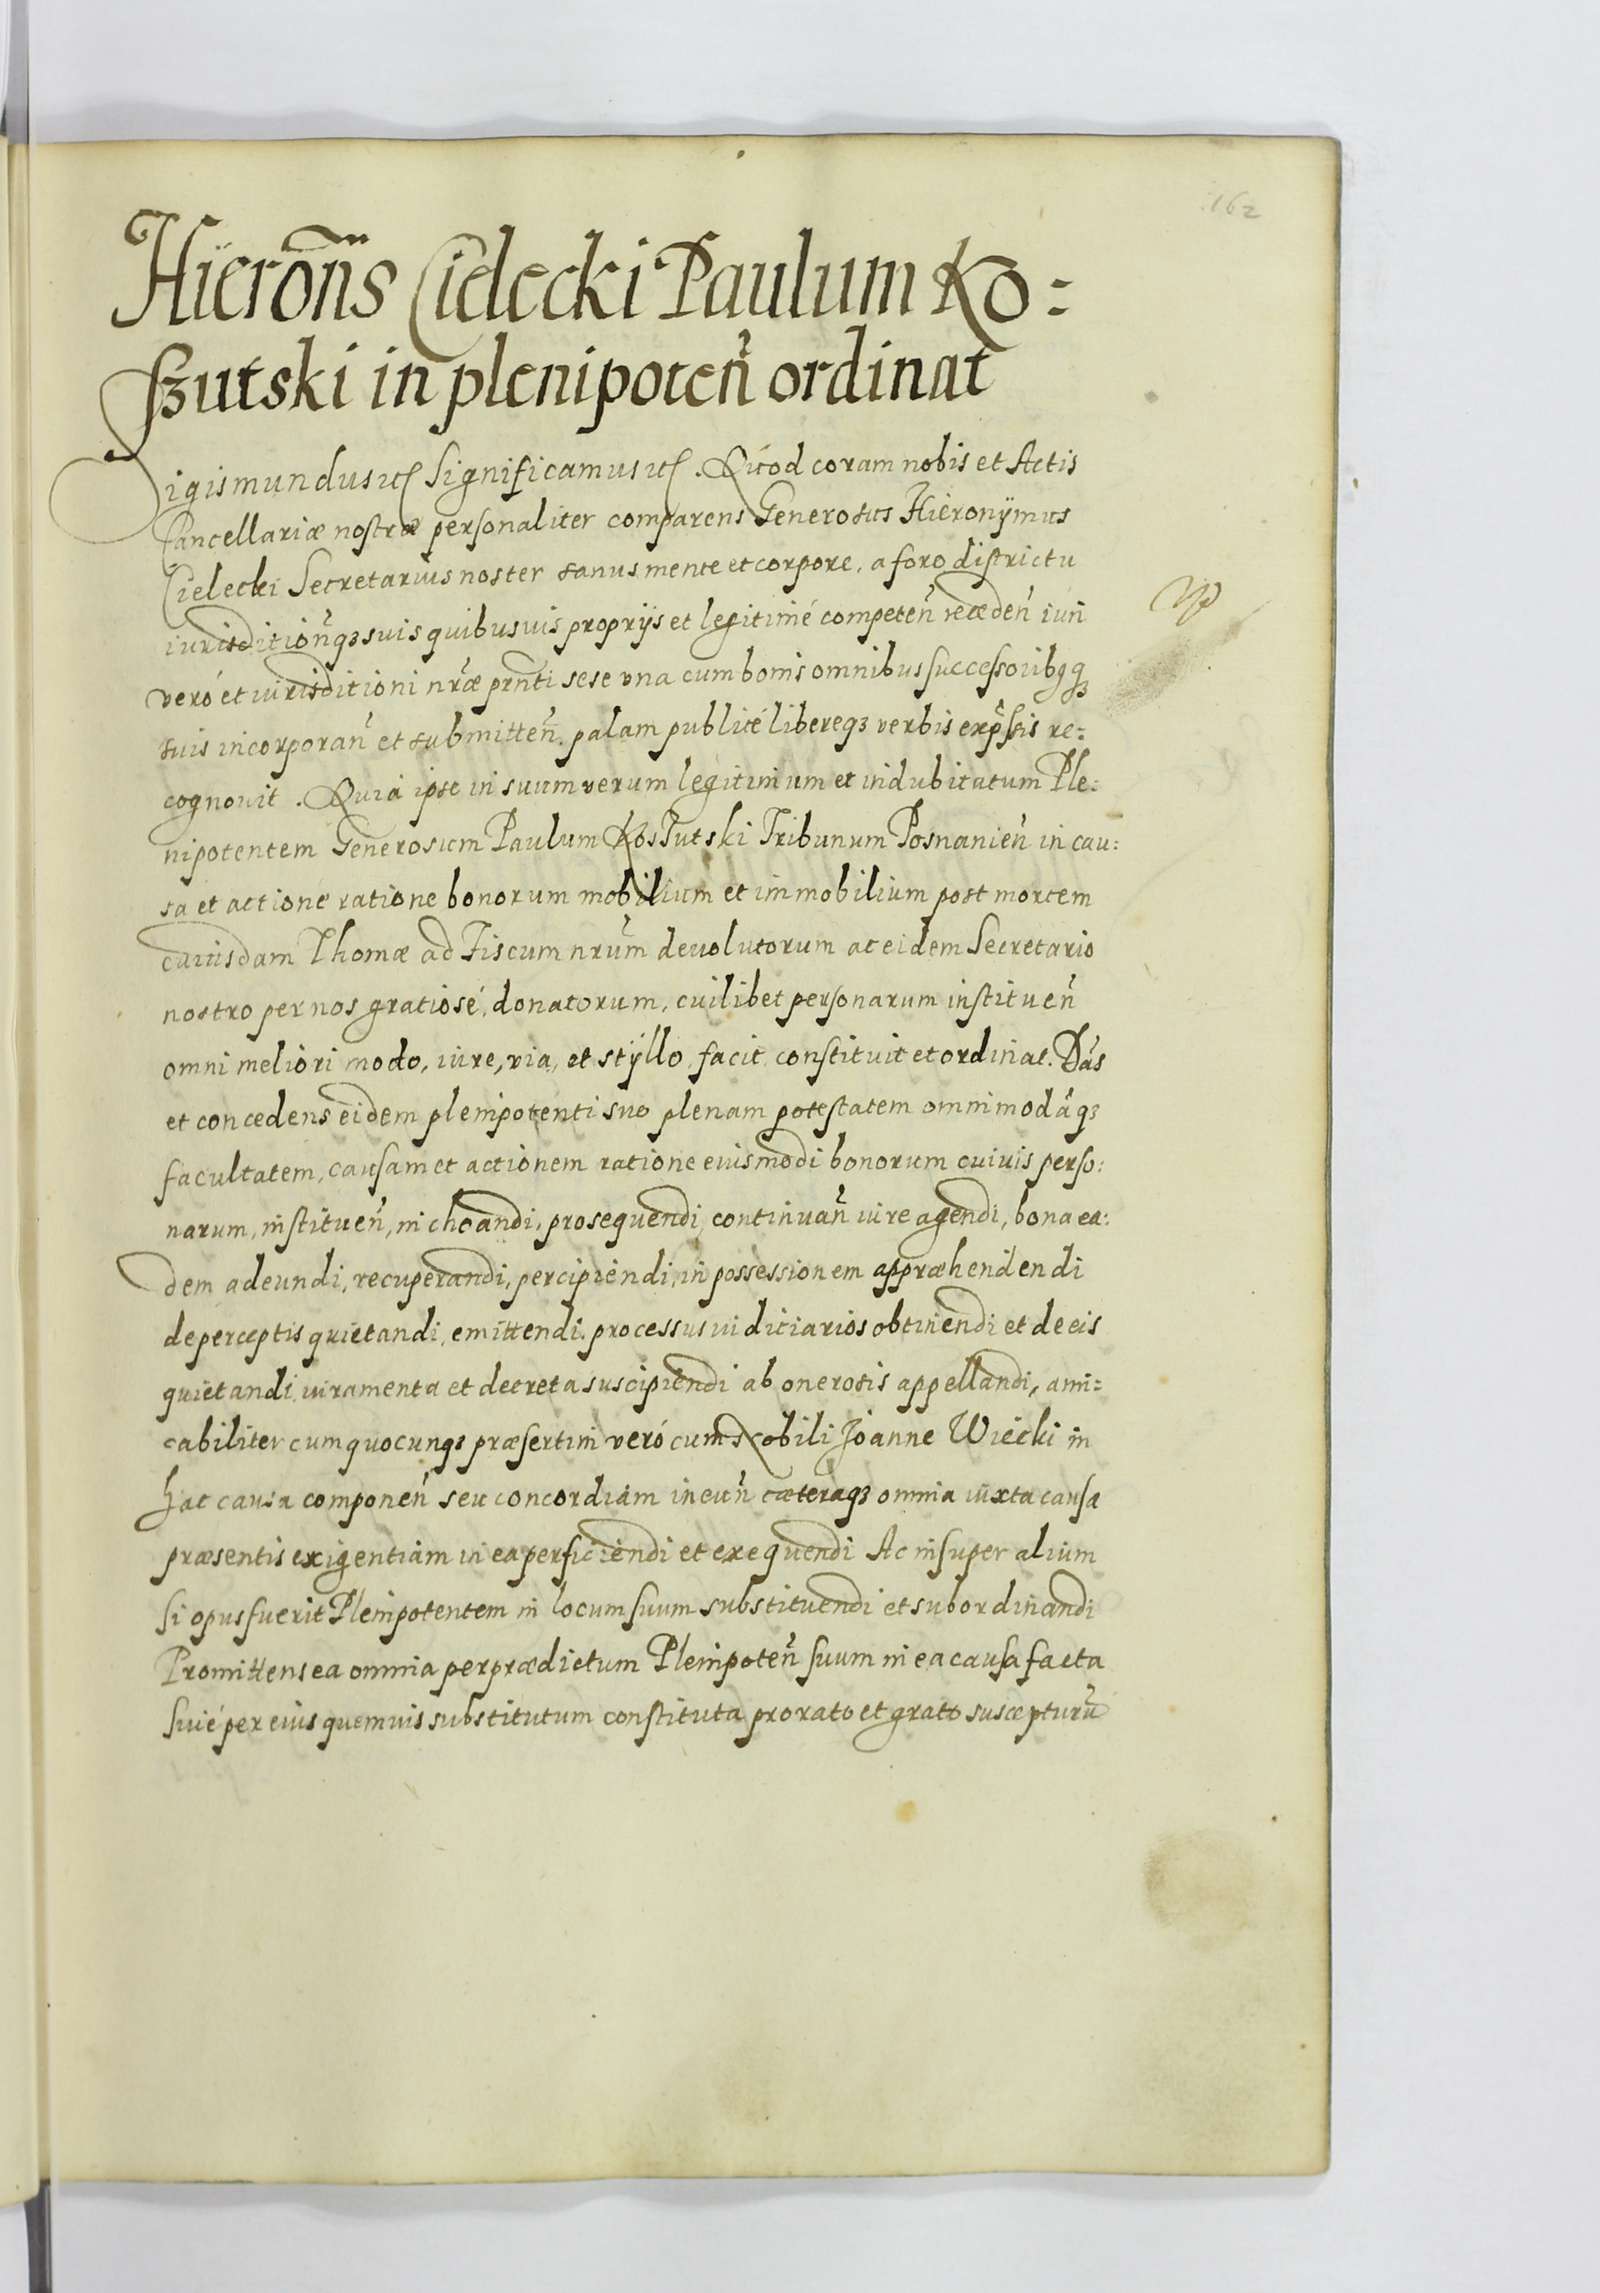 162
Hieronȳs Cielecki Paulum Ko=
szutski in plenipoteñ ordinat
Sigismundus etc Significamus etc. Quod coram nobis et Actis
Cancellariæ nostræ personaliter comparens Generosus Hieronÿmus
Cielecki Secretarius noster sanus mente et corpore, a foro districtu
iurisditioñqз suis quibusuis proprijs et legitimé competeñ recedeñ iuri
veró et iurisditioni nr̃æ prñti sese vna cum bonis omnibus successoribqз
suis incorporañ et submitteñ. palam publicé libereqз verbis exp̃ssis re=
cognouit. Quia ipse in suum verum legitimum et indubitatum Ple=
nipotentem Generosum Paulum Koszutski Tribunum Posnanieñ in cau=
sa et actione ratione bonorum mobilium et immobilium post mortem
cuiusdam Thomæ ad Fiscum nr̃um deuolutorum ac eidem Secretario
nostro per nos gratiosé, donatorum, cuilibet personarum institueñ
omni meliori modo, iure, via, et stÿllo facit constituit et ordinat. Dãs
et concedens eidem plenipotenti suo plenam potestatem omnimodãqз
facultatem, causam et actionem ratione eiusmodi bonorum cuiuis perso:
narum, institueñ, inchoandi, prosequendi, continuañ iure agendi, bona ea:
dem adeundi, recuperandi, percipiendi, in possessionem appræhendendi
de perceptis quietandi, emittendi. processus iuditiarios obtinendi et de eis
quietandi, iuramenta et decreta suscipiendi ab onerosis appellandi, ami=
cabiliter cum quocunqз præsertim veró cum Nobili Joanne Wiecki in
hac causa componeñ seu concordiam ineuñ cæteraqз omnia iuxta causæ
præsentis exigentiam in ea perficiendi et exequendi Ac insuper alium
si opus fuerit Plenipotentem in locum suum substituendi et subordinandi
Promittens ea omnia per prædictum Plenipoteñ suum in ea causa facta
siué per eius quemuis substitutum constituta pro rato et grato suscepturũ